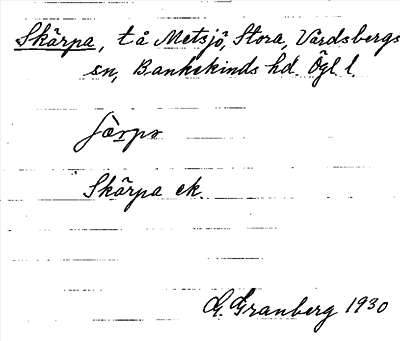 Skärpa, t å Metsjö, Stora, Vårdsbergs
sn, Bankekinds hd. Ögl l.
Skärpa ek.
G. Granberg 1930